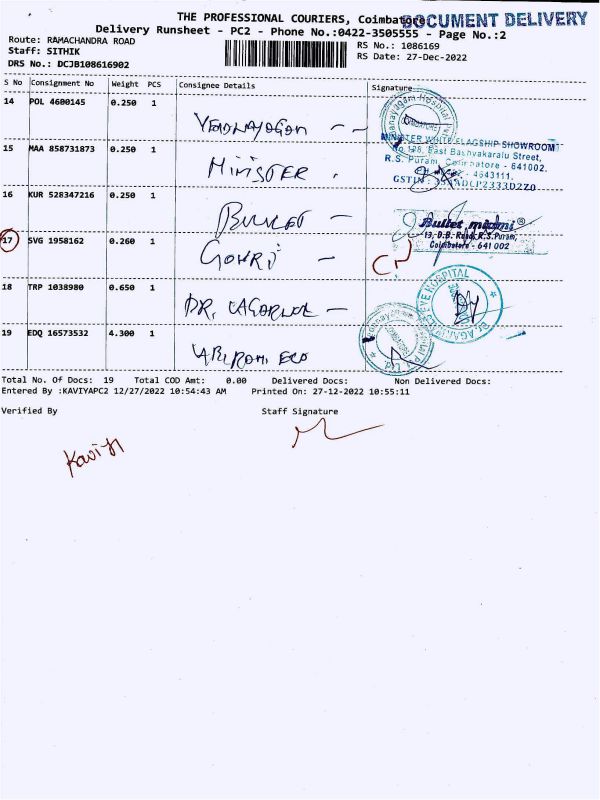 THE PROFESSIONAL COURIERS, Coimbatore
DOCUMENT DELIVERY
Delivery Runsheet - PC2 - Phone No.:0422-3505555 - Page No.:2
Route: RAMACHANDRA ROAD
RS No.: 1086169
Staff: SITHIK
RS Date: 27-Dec-2022
DRS No.: DCJB108616902
S No Consignment No Weight PCS Consignee Details Signature
14 POL 4600145 0.250 1
15 MAA 858731873 0.250 1 MINISTER
MINISTER WHITE FLAGSHIP SHOWROOM
No 128, East Bashyakaralu Street,
R.S. Puram, Coimbatore - 641002.
4643111.
GSTIN :
16 KUR 528347216 0.250 1 BULLET
Bullet ®
13, D.B. Road, R.S.Puram,
Coimbatore - 641 002
17 SVG 1958162 0.260 1 GOWRI
18 TRP 1038980 0.650 1 DR. AGARWAL
EYE HOSPITAL
19 EDQ 16573532 4.300 1
Total No. Of Docs: 19 Total COD Amt: 0.00 Delivered Docs: Non Delivered Docs:
Entered By :KAVIYAPC2 12/27/2022 10:54:43 AM Printed On: 27-12-2022 10:55:11
Verified By Staff Signature